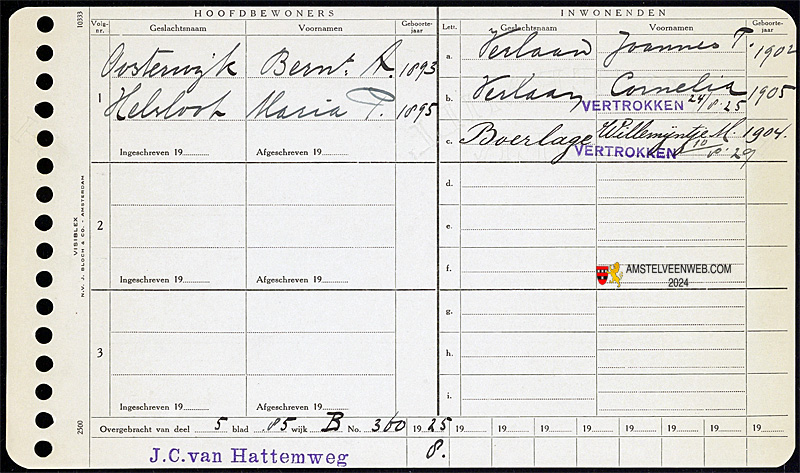 10333
HOOFDBEWONERS
Volg-nr.
Geslachtsnaam
Voornamen
Geboorte-jaar
INWONENDEN
Letr.
Geslachtsnaam
Voornamen
Geboorte-jaar
1
Oosterwijk Bernt. A. 1893
Helsloot Maria P. 1895
Ingeschreven 19
Afgeschreven 19
2
Ingeschreven 19
Afgeschreven 19
3
Ingeschreven 19
Afgeschreven 19
a. Verlaan Joannes T. 1902
b. Verlaan Cornelia 1905
VERTROKKEN 24/8.25
c. Boerlage Willemijntje M. 1904.
VERTROKKEN 10/8.29
d.
e.
f.
g.
h.
i.
AMSTELVEENWEB.COM
2024
VISIBLEX
N.V. J. BLOCH & CO. - AMSTERDAM
2500
Overgebracht van deel 5 blad 85 wijk B No. 360 19 25
19 19 19 19 19 19 19 19
8.
J.C.van Hattemweg